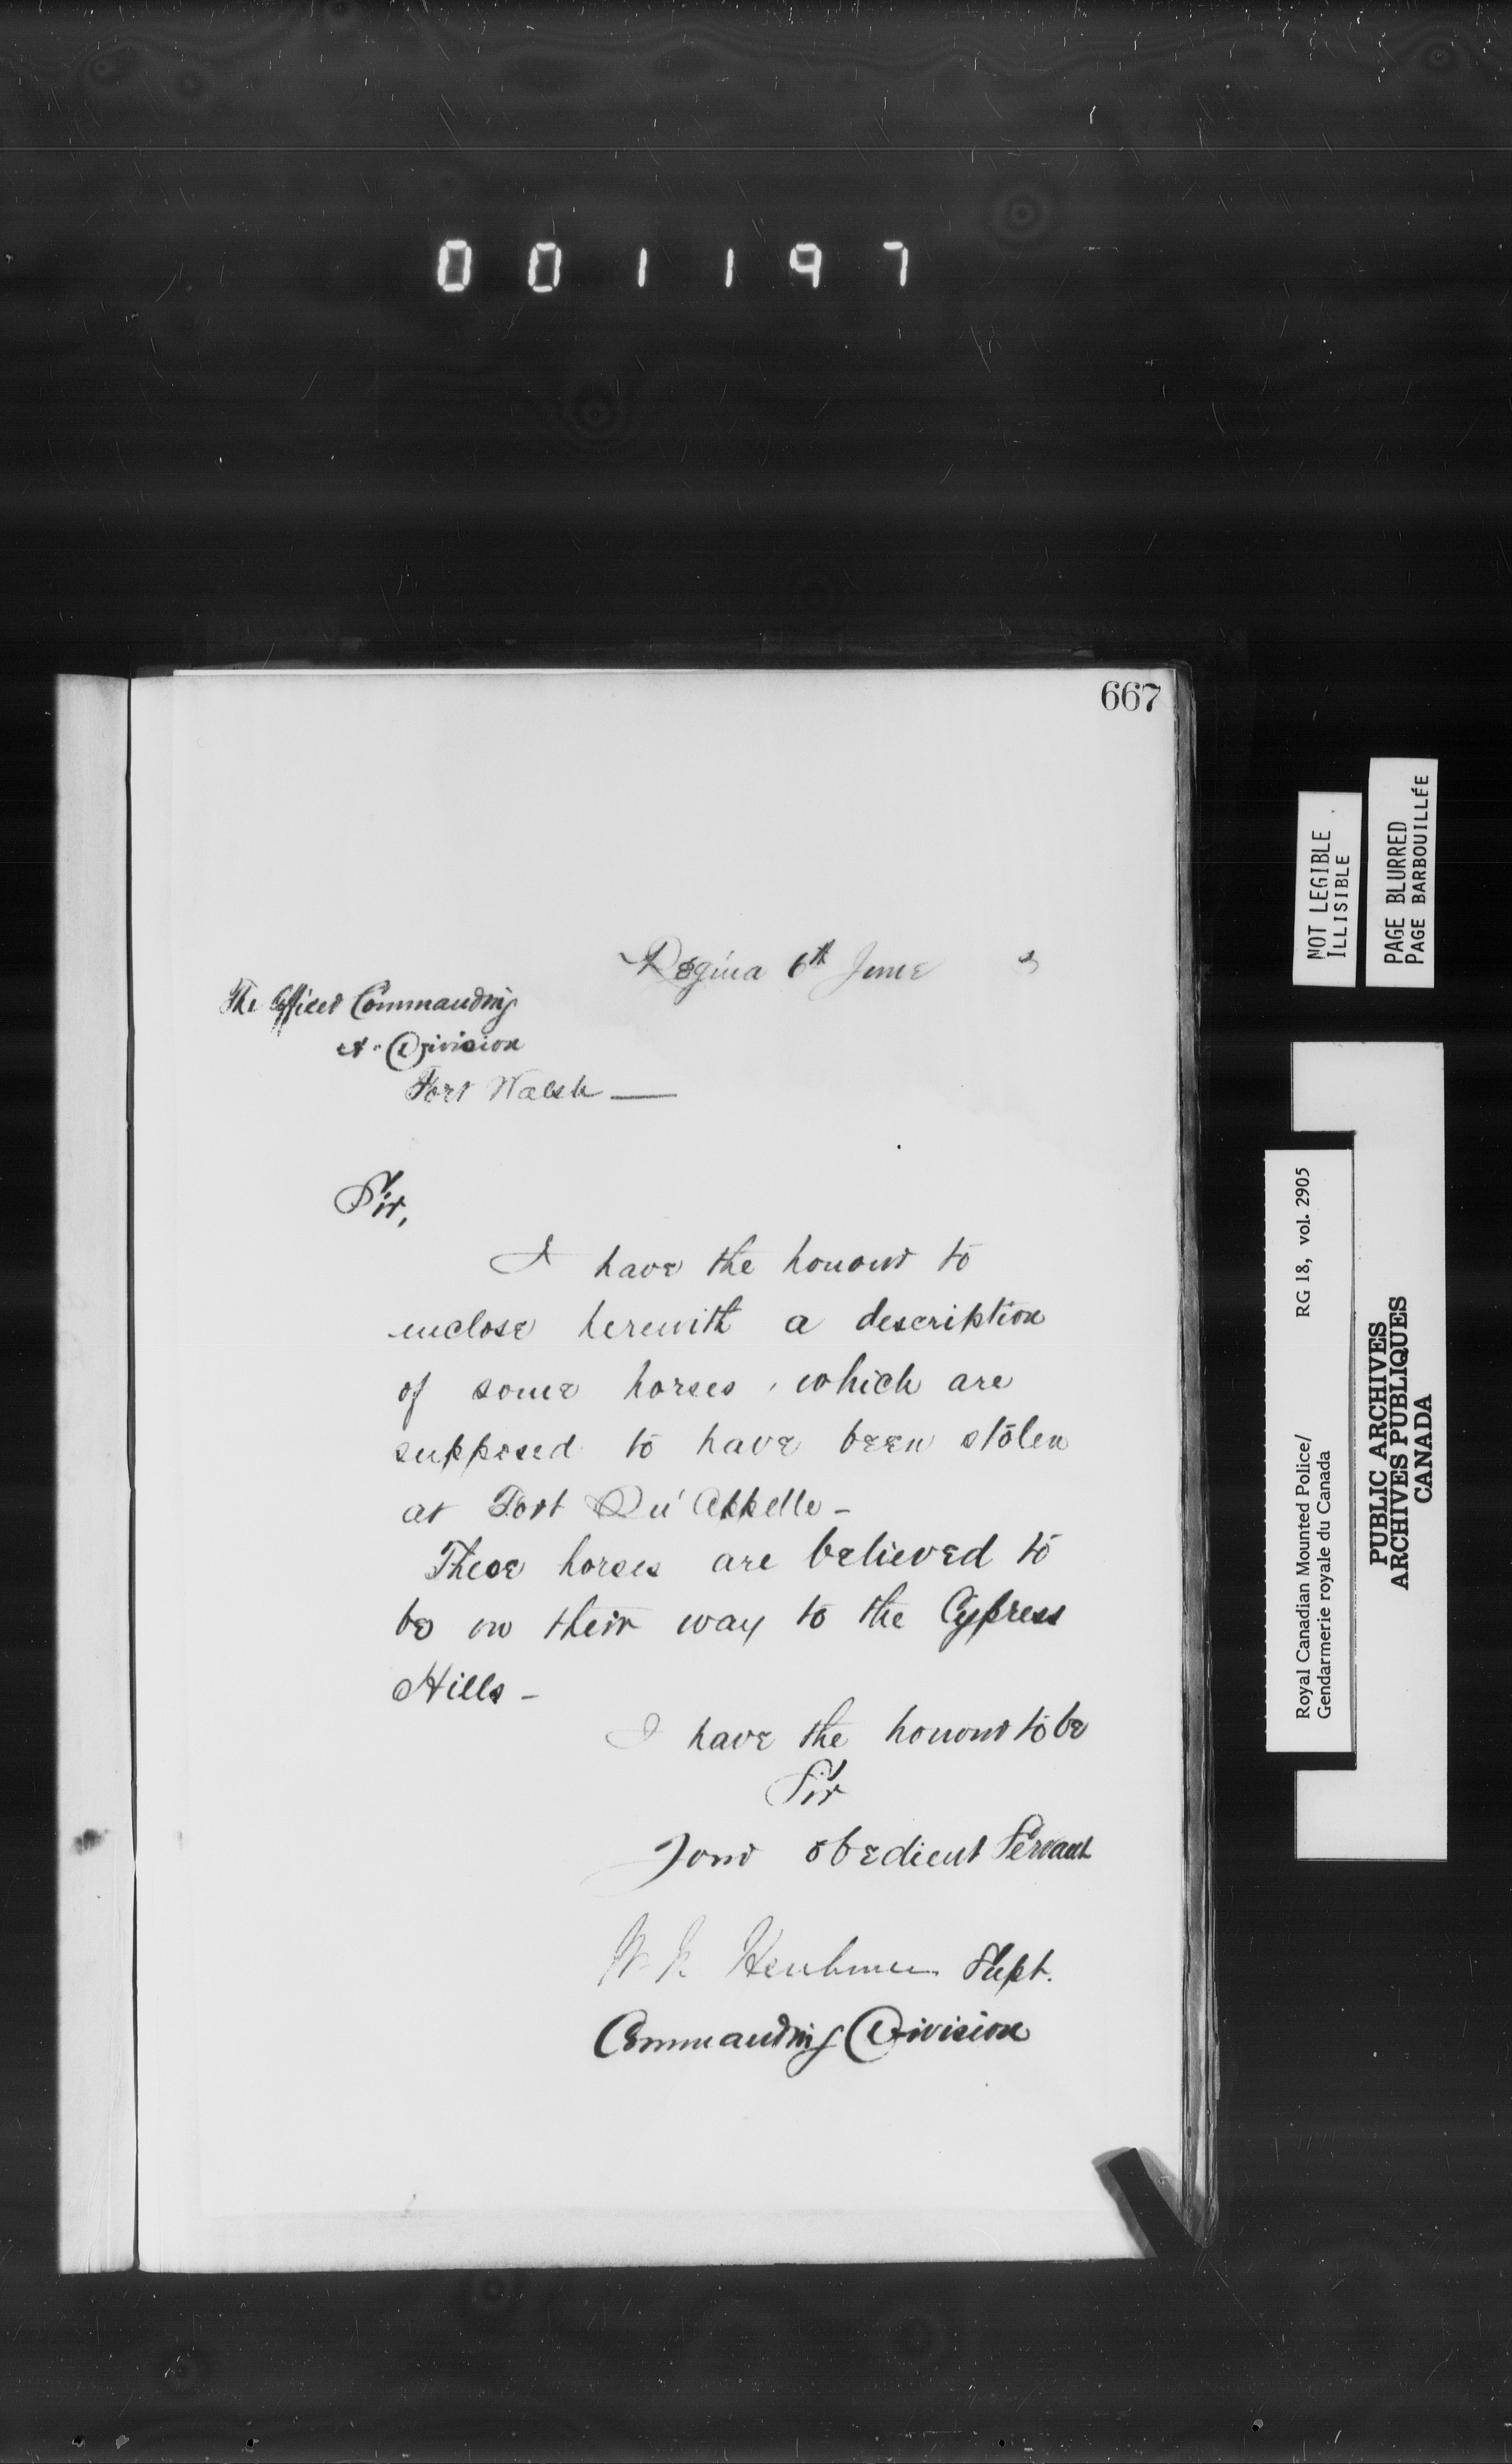 001197
667
Regina 6th June 3
The Officer Commanding
A. Division
Fort Walsh —
Sir,
I have the honour to
enclose herewith a description
of some horses, which are
supposed to have been stolen
at Fort Qu'Appelle -
These horses are believed to
be on their way to the Cypress
Hills -
I have the honour to be
Sir
Your obedient Servant
Supt.
Commanding Division
NOT LEGIBLE
ILLISIBLE
PAGE BLURRED
PAGE BARBOUILLÉE
Royal Canadian Mounted Police/ RG 18, vol. 2905
Gendarmerie royale du Canada
PUBLIC ARCHIVES
ARCHIVES PUBLIQUES
CANADA